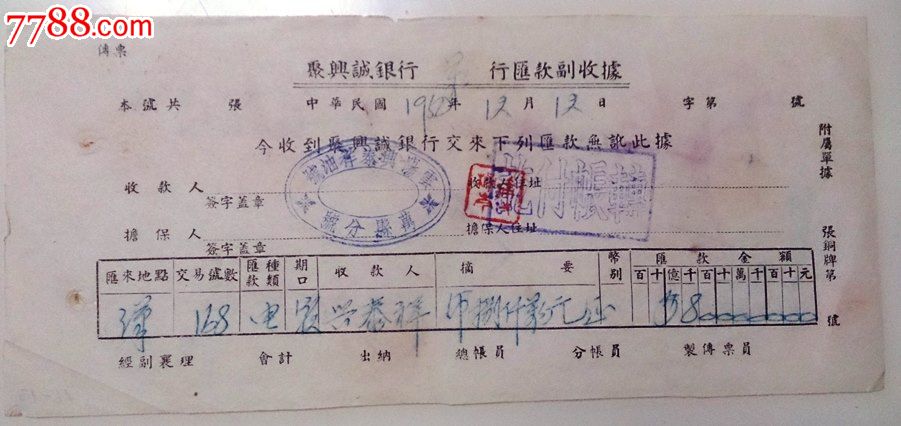 7788.com
傳票
聚興誠銀行 萬 行匯款副收據
本號共 張 中華民國 195 年 12 月 12 日 字第 號
今收到聚興誠銀行交來下列匯款無訛此據
附屬單據
收款人 收款人住址
簽字蓋章
擔保人 擔保人住址
簽字蓋章
萬縣分號
轉帳付訖
張銅牌第 號
匯來地點 交易號數 匯款種類 期口 收款人 摘要 幣別 匯款金額
百十億千百十萬千百十元
漢 168 電 興泰祥
經副襄理 會計 出納 總帳員 分帳員 製傳票員